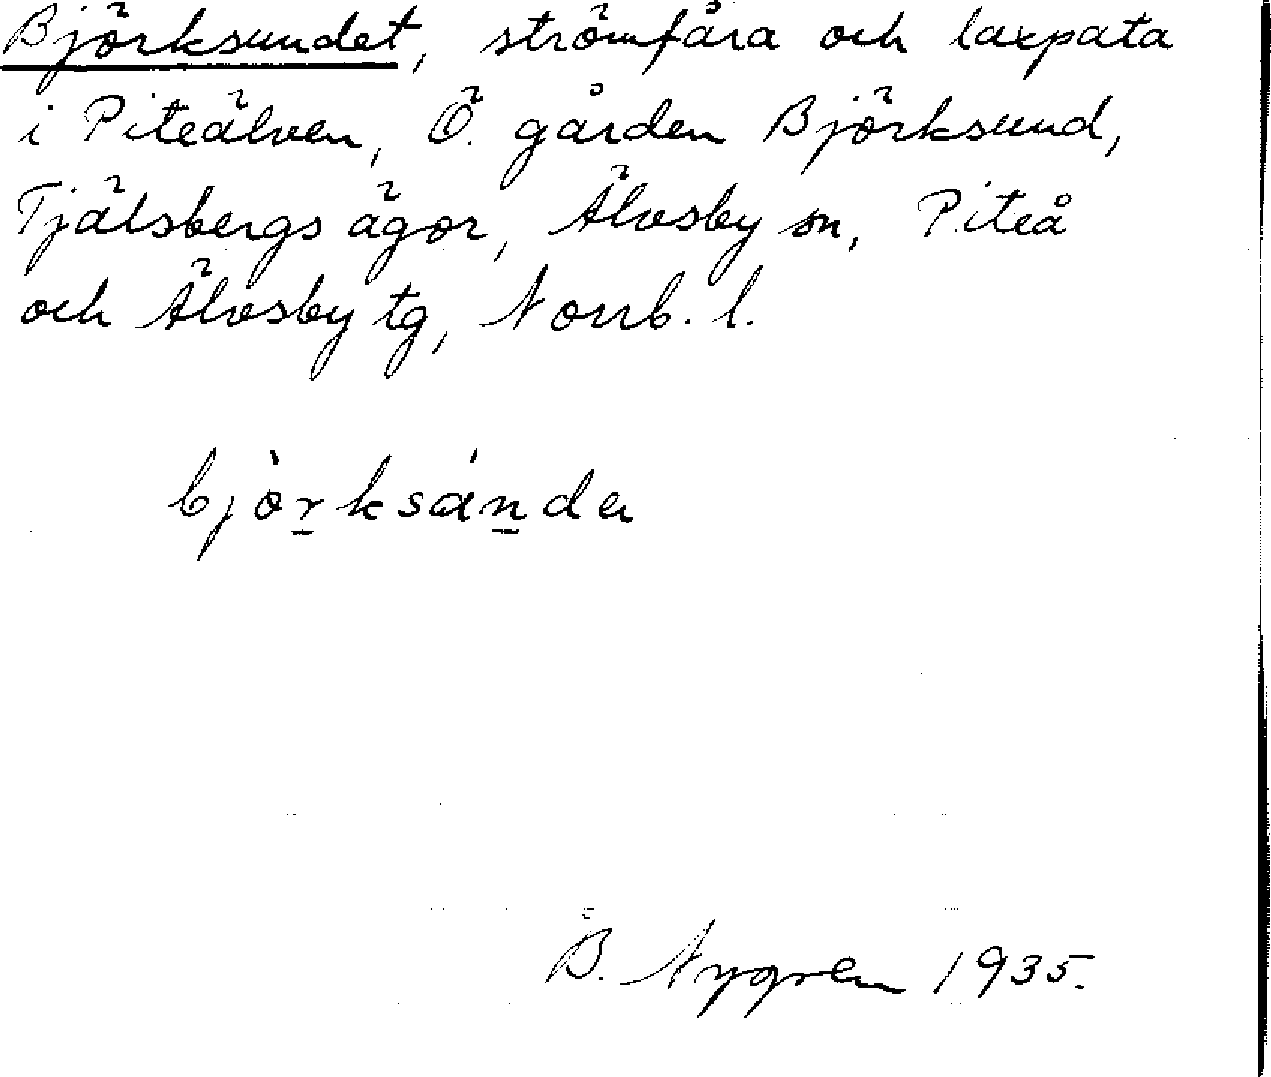 Björksundet, strömfåra och laxpata
i Piteälven, Ö. gården Björksund,
Tjälsbergs ägor, Älvsby sn, Piteå
och Älvsby tg, Norrb. l.
bjòrksánda
B. Nygren 1935.